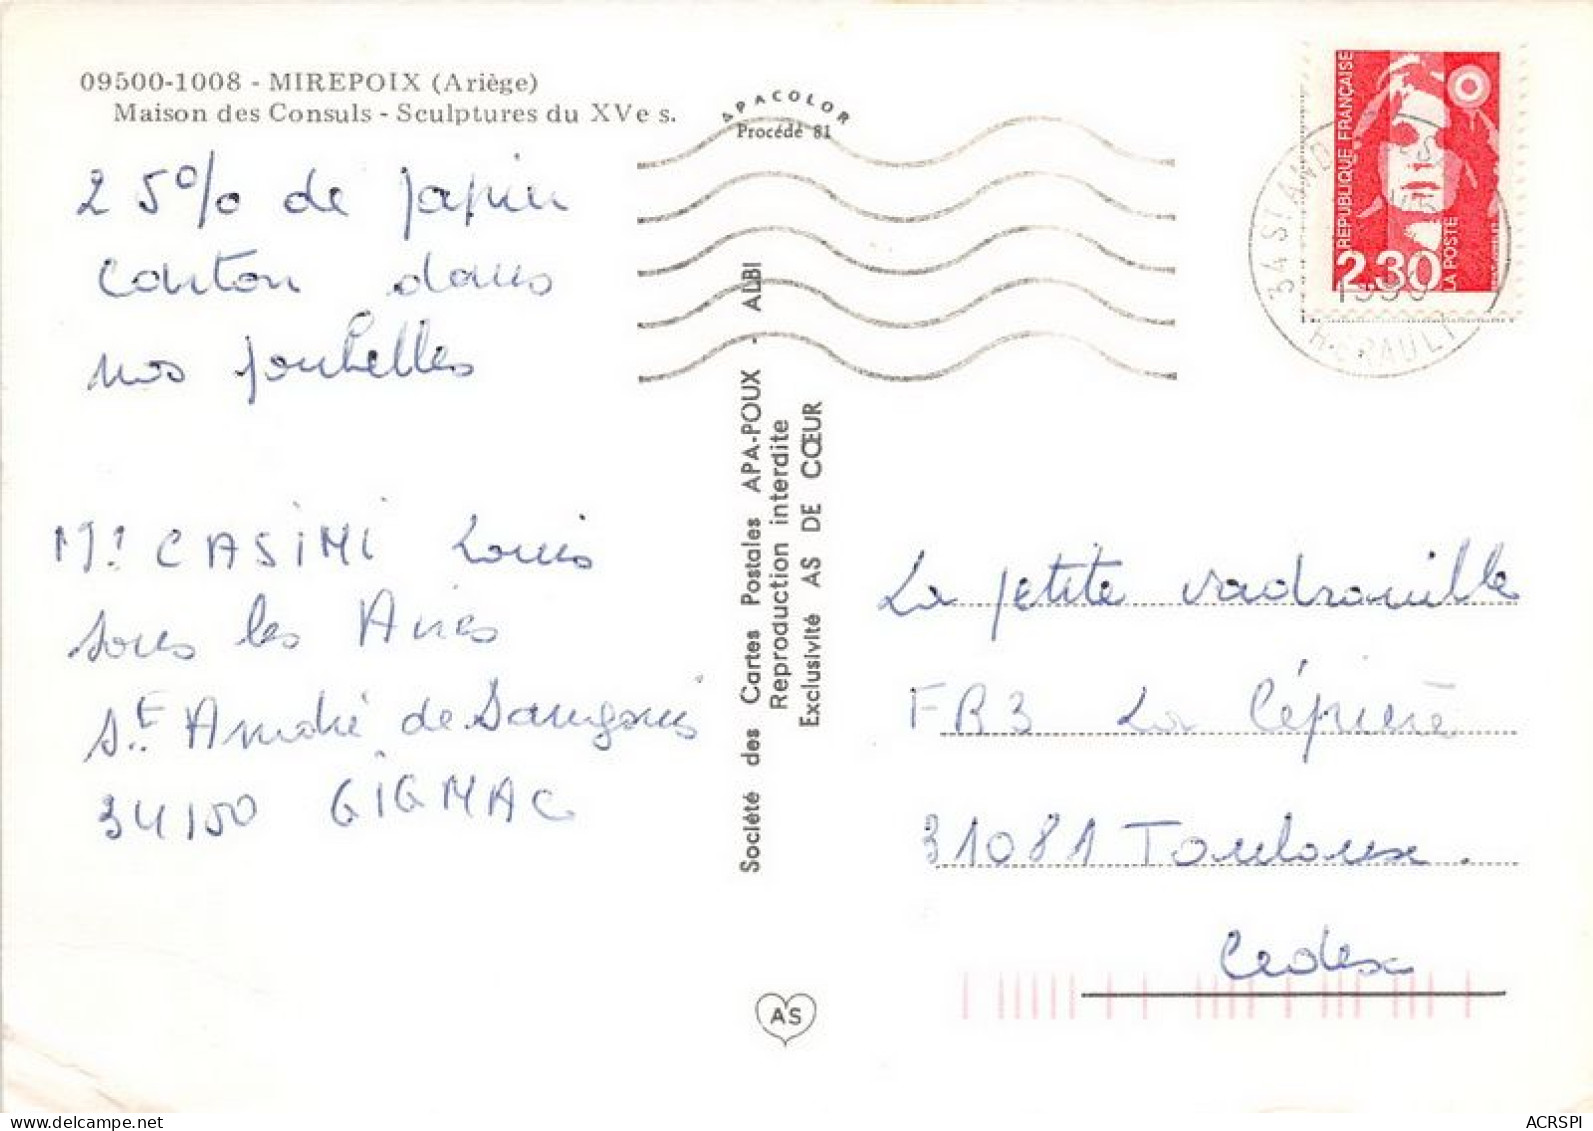 09500-1008 - MIREPOIX (Ariège)
Maison des Consuls - Sculptures du XVe s.
APACOLOR
Procédé 81
25% de papier
carton dans
nos poubelles
Mr CASIMI Louis
sous les Aires
St André de Sangonis
34150 GIGNAC
Société des Cartes Postales APA-POUX - ALBI
Reproduction interdite
Exclusivité AS DE CŒUR
AS
REPUBLIQUE FRANÇAISE
2,30
LA POSTE
34 ST AND
1990
HERAULT
La petite vadrouille
FR3 La Cépière
31081 Toulouse.
Cedex
delcampe.net
ACRSPI